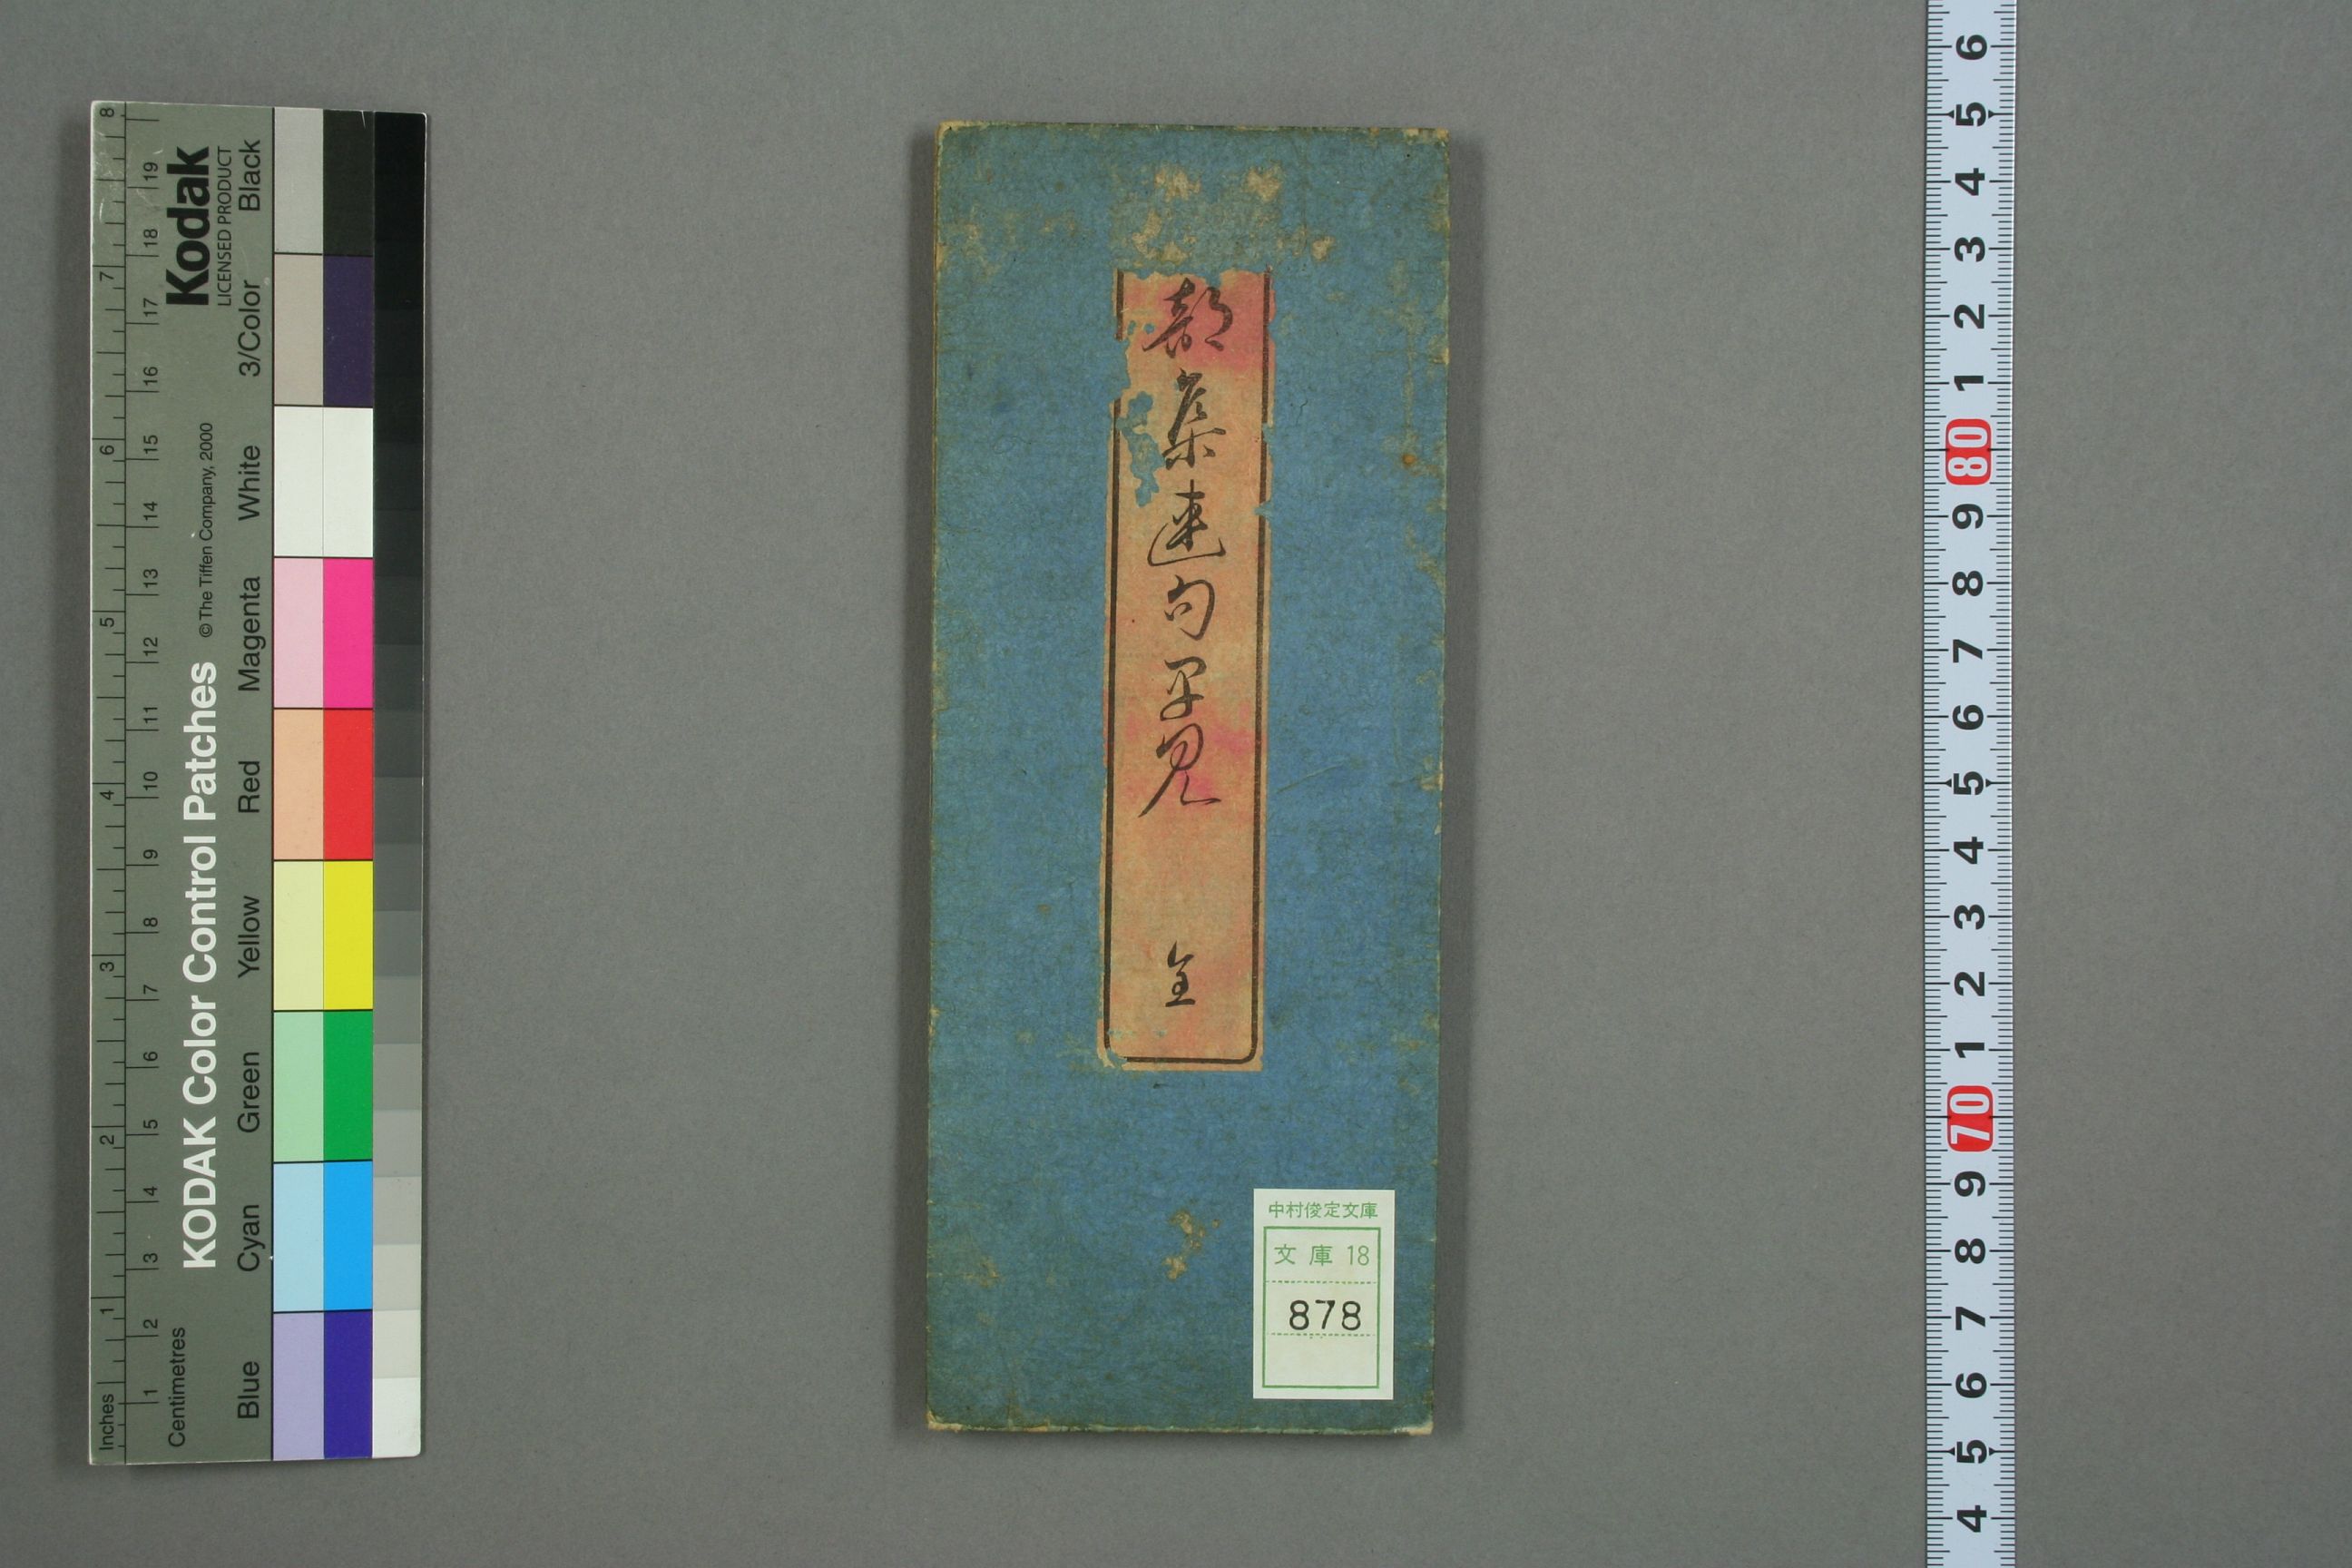 KODAK Color Control Patches
Kodak
LICENSED PRODUCT
© The Tiffen Company, 2000
Inches
1 2 3 4 5 6 7 8
Centimetres
1 2 3 4 5 6 7 8 9 10 11 12 13 14 15 16 17 18 19
Blue Cyan Green Yellow Red Magenta White 3/Color Black
部集連句早見
全
中村俊定文庫
文庫 18
878
6
5
4
3
2
1
80
9
8
7
6
5
4
3
2
1
70
9
8
7
6
5
4